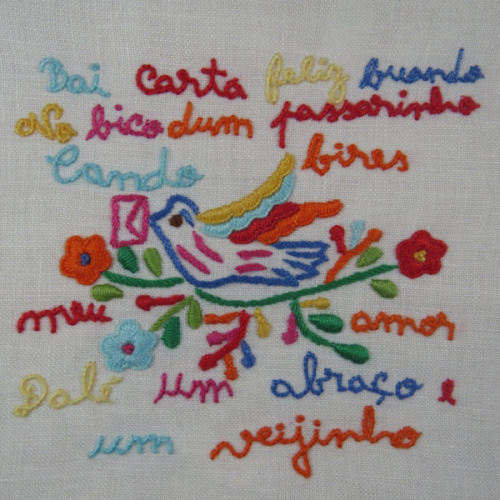 Bai carta feliz buando
No bico dum passarinho
Cando bires
meu amor
Dalé um abraço e
um veijinho